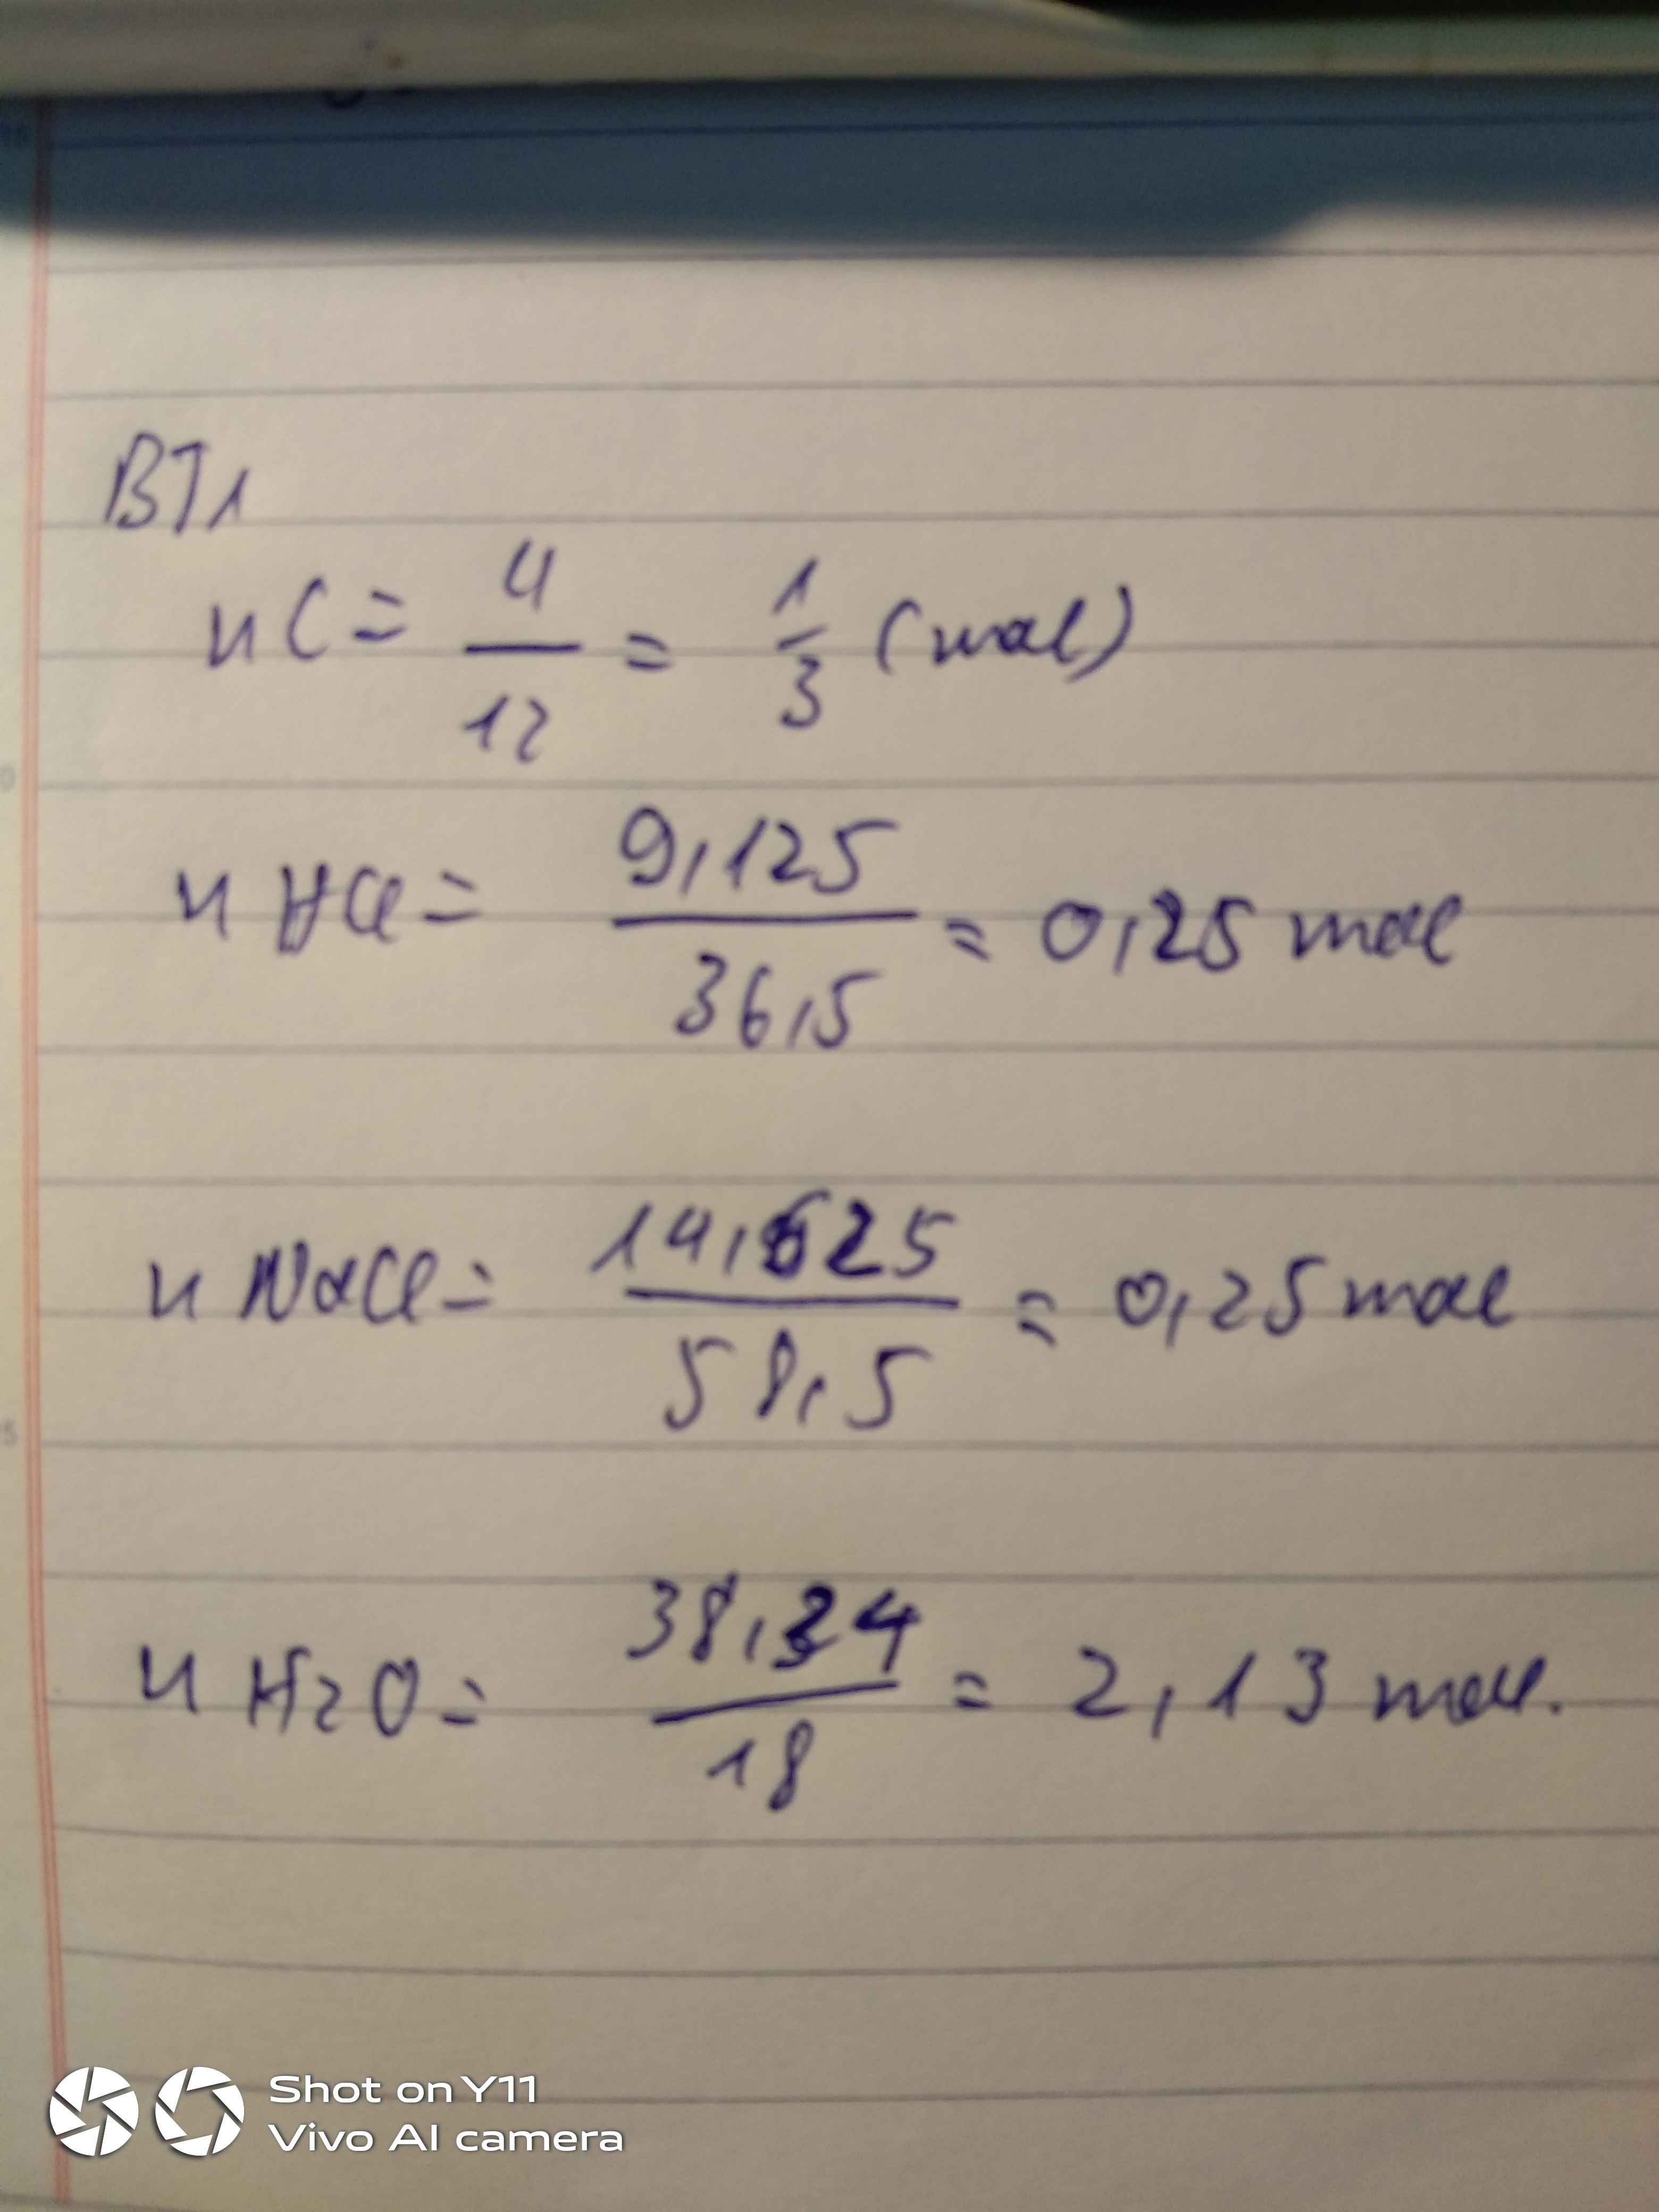 BT1
nC = 4/12 = 1/3 (mol)
nHCl = 9,125/36,5 = 0,25 mol
nNaCl = 14,625/58,5 = 0,25 mol
nH2O = 38,34/18 = 2,13 mol.
Shot on Y11
Vivo AI camera